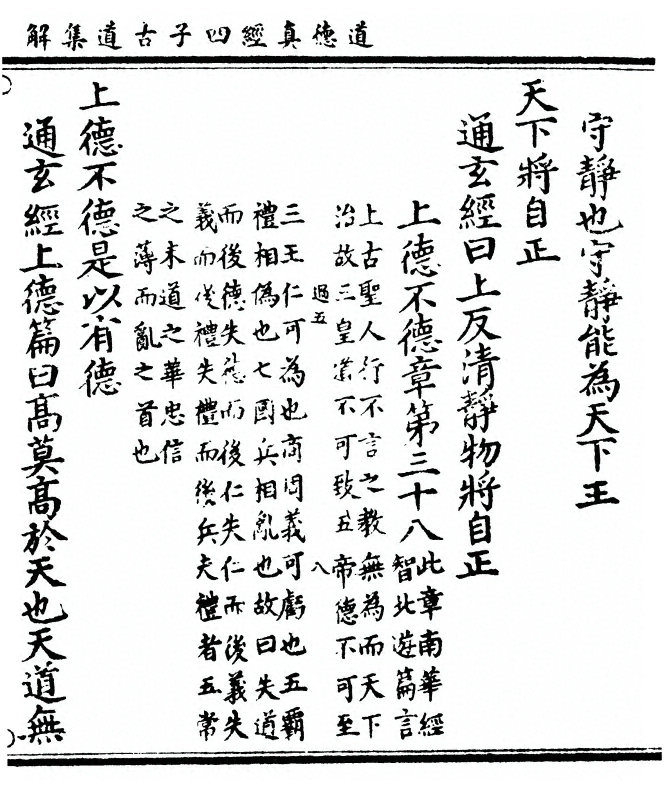 道德真經四子古道集解
守靜也守靜能為天下王
天下將自正
通玄經曰上反清靜物將自正
上德不德章第三十八
此章南華經
智北遊篇言
上古聖人行不言之教無為而天下
治故三皇道不可致五帝德不可至
過五 八
三王仁可為也商周義可虧也五霸
禮相偽也七國兵相亂也故曰失道
而後德失德而後仁失仁而後義失
義而後禮失禮而後兵夫禮者五常
之末道之華忠信
之薄而亂之首也
上德不德是以有德
通玄經上德篇曰高莫高於天也天道無